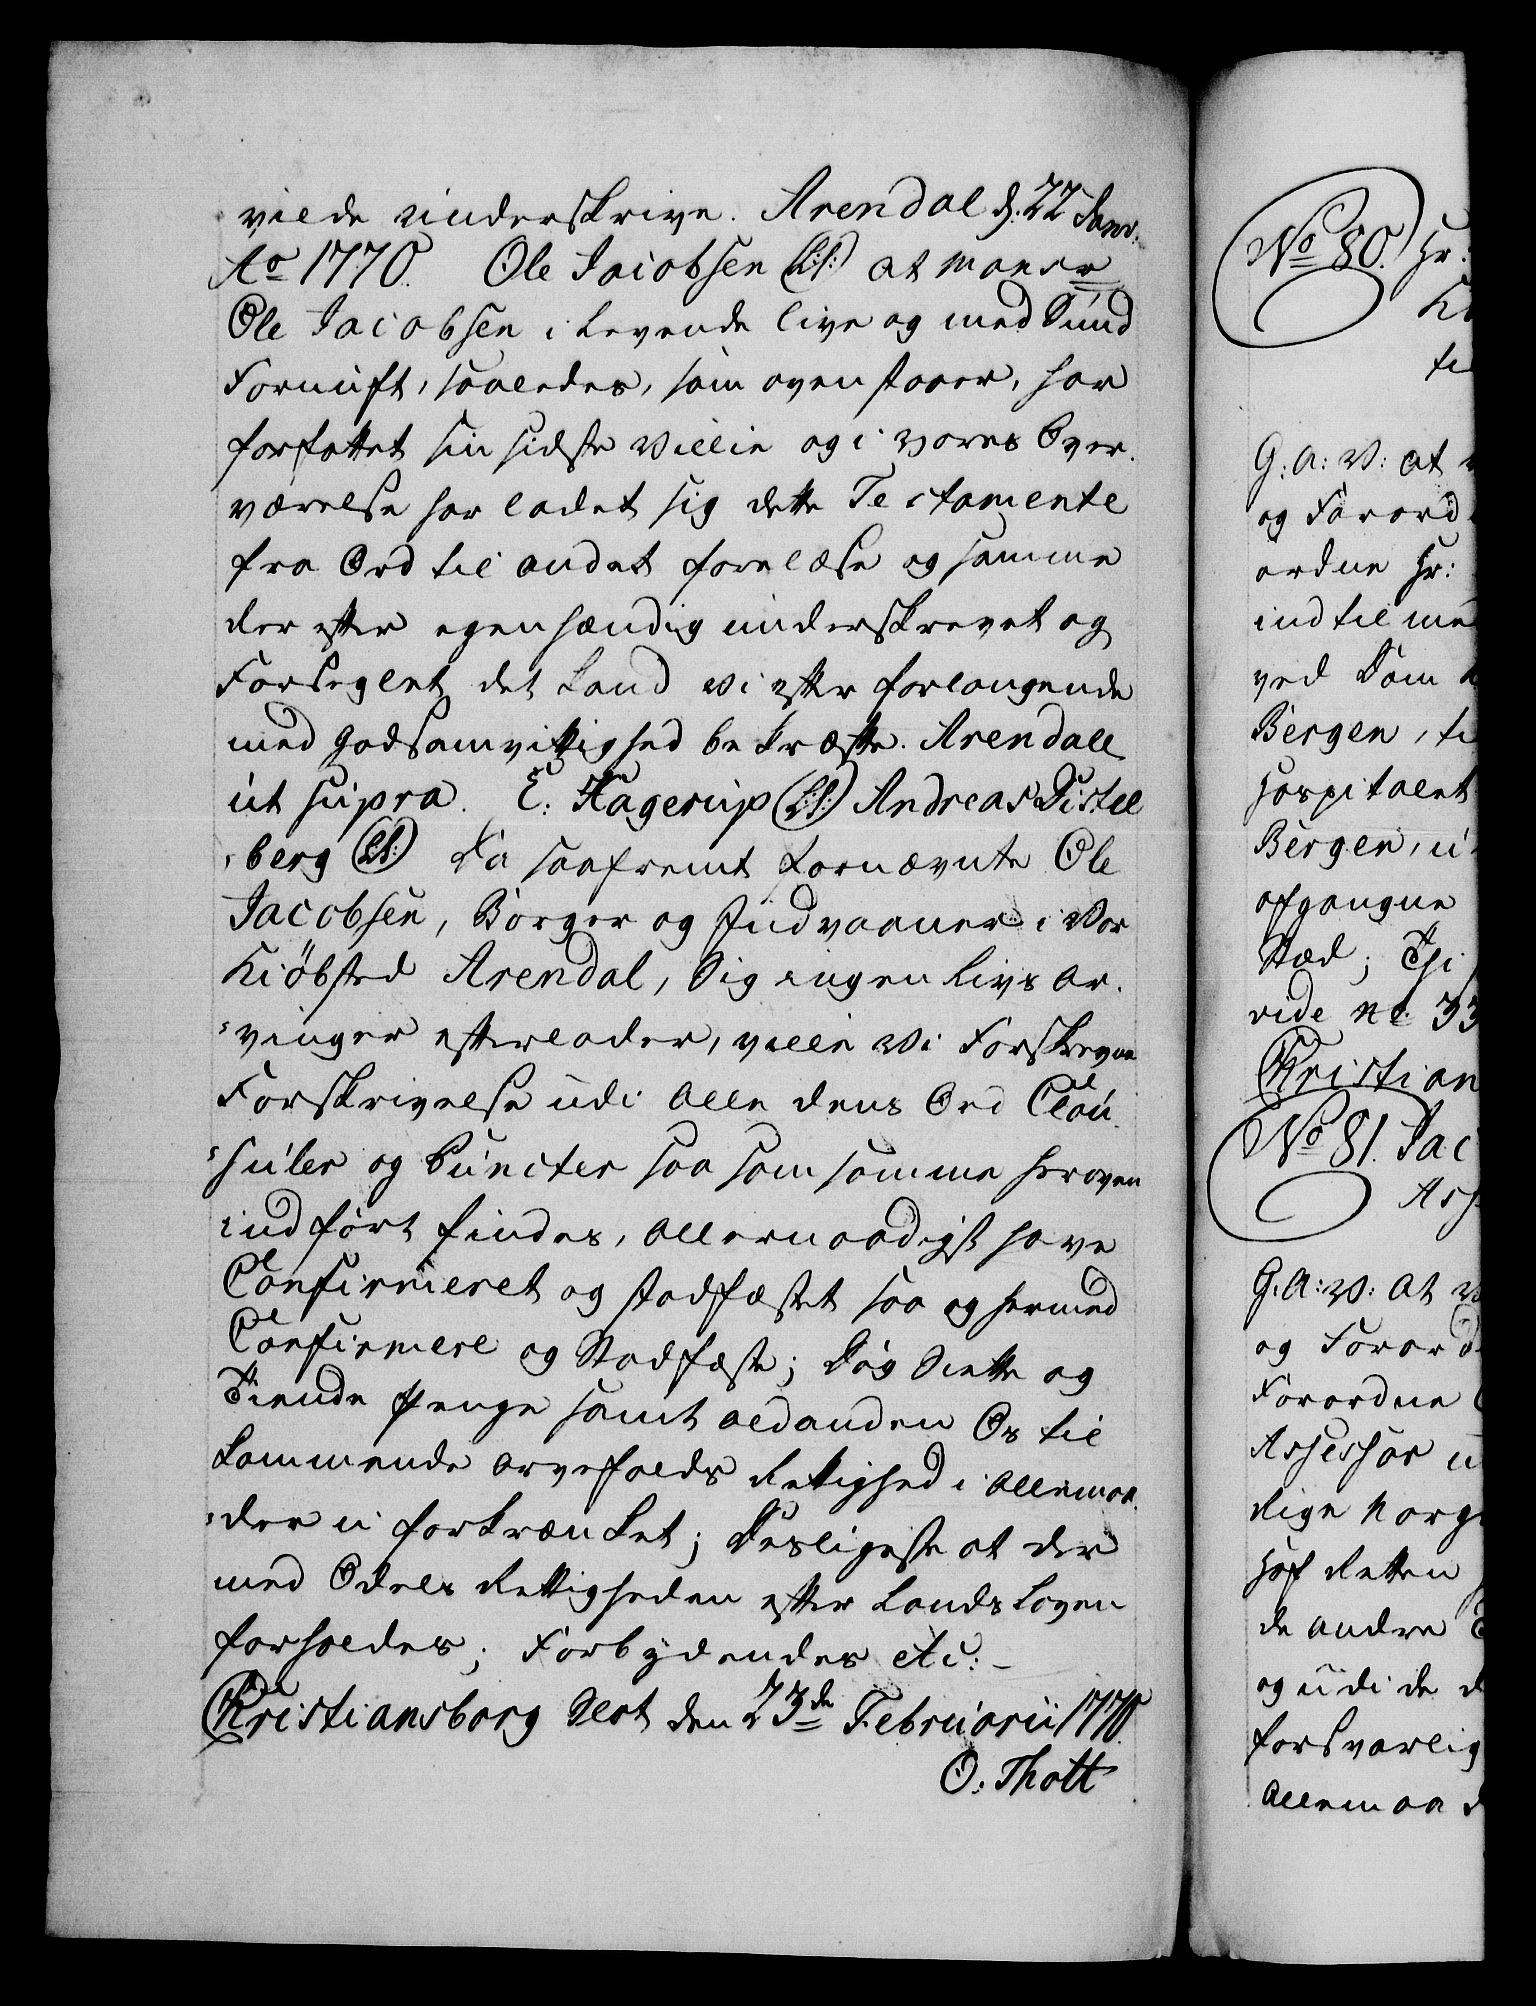 vilde underskrive. Arendal d. 22 Janv:
Ao 1770. Ole Jacobsen (L:S:) at Monsr
Ole Jacobsen i Levende live og med Sund
Fornuft, saaledes, som oven staaer, har
forfattet sin sidste Villie og i vores Over-
værelse har ladet sig dette Testamente
fra Ord til andet forelæse og samme
der efter egenhændig underskrevet og
Forseglet det Kand vi efter forlangende
med godsamvittighed bekræfte. Arendall
ut supra. E: Hagerup (L:S:) Andreas Distel
-berg (LS:) Da saafremt fornævnte Ole
Jacobsen, Borger og Indvaaner i Vor
Kiöbsted Arendal, Sig ingen Livs Ar-
-vinger efterlader, ville Vi Forskrevne
Forskrivelse udi Alle dens Ord Clau-
-suler og Puncter saa som samme heroven
indført findes, Allernaadigst have
Confirmeret og stadfæstet saa og hermed
Confirmere og Stadfæste; Dog Siette og
Tiende Penge samt aldanden Os til
kommende Arvefalds Rettighed i Allemaa-
-der u-forkrænket; Desligeste at der
med Odels Rettigheden efter Lands Loven
forholdes; Forbydendes etc: -
Christiansborg Slot den 23de Februarii 1770.
O. Thott
No 80. Hr:
Ki
til
G: A: V: at
og Forord
ordne Hr:
indtil me
ved Dom
Bergen, ti
Hospitalet
Bergen, u
afgangne
Sted; Thi
vide No 33
Christian
No 81. Jac
Ass
G: A: V: at V
og Foror
Forordne
Assessor u
Rige Norge
Hof Retten
de andre
og udi de d
forsvarlig
Allemaa d